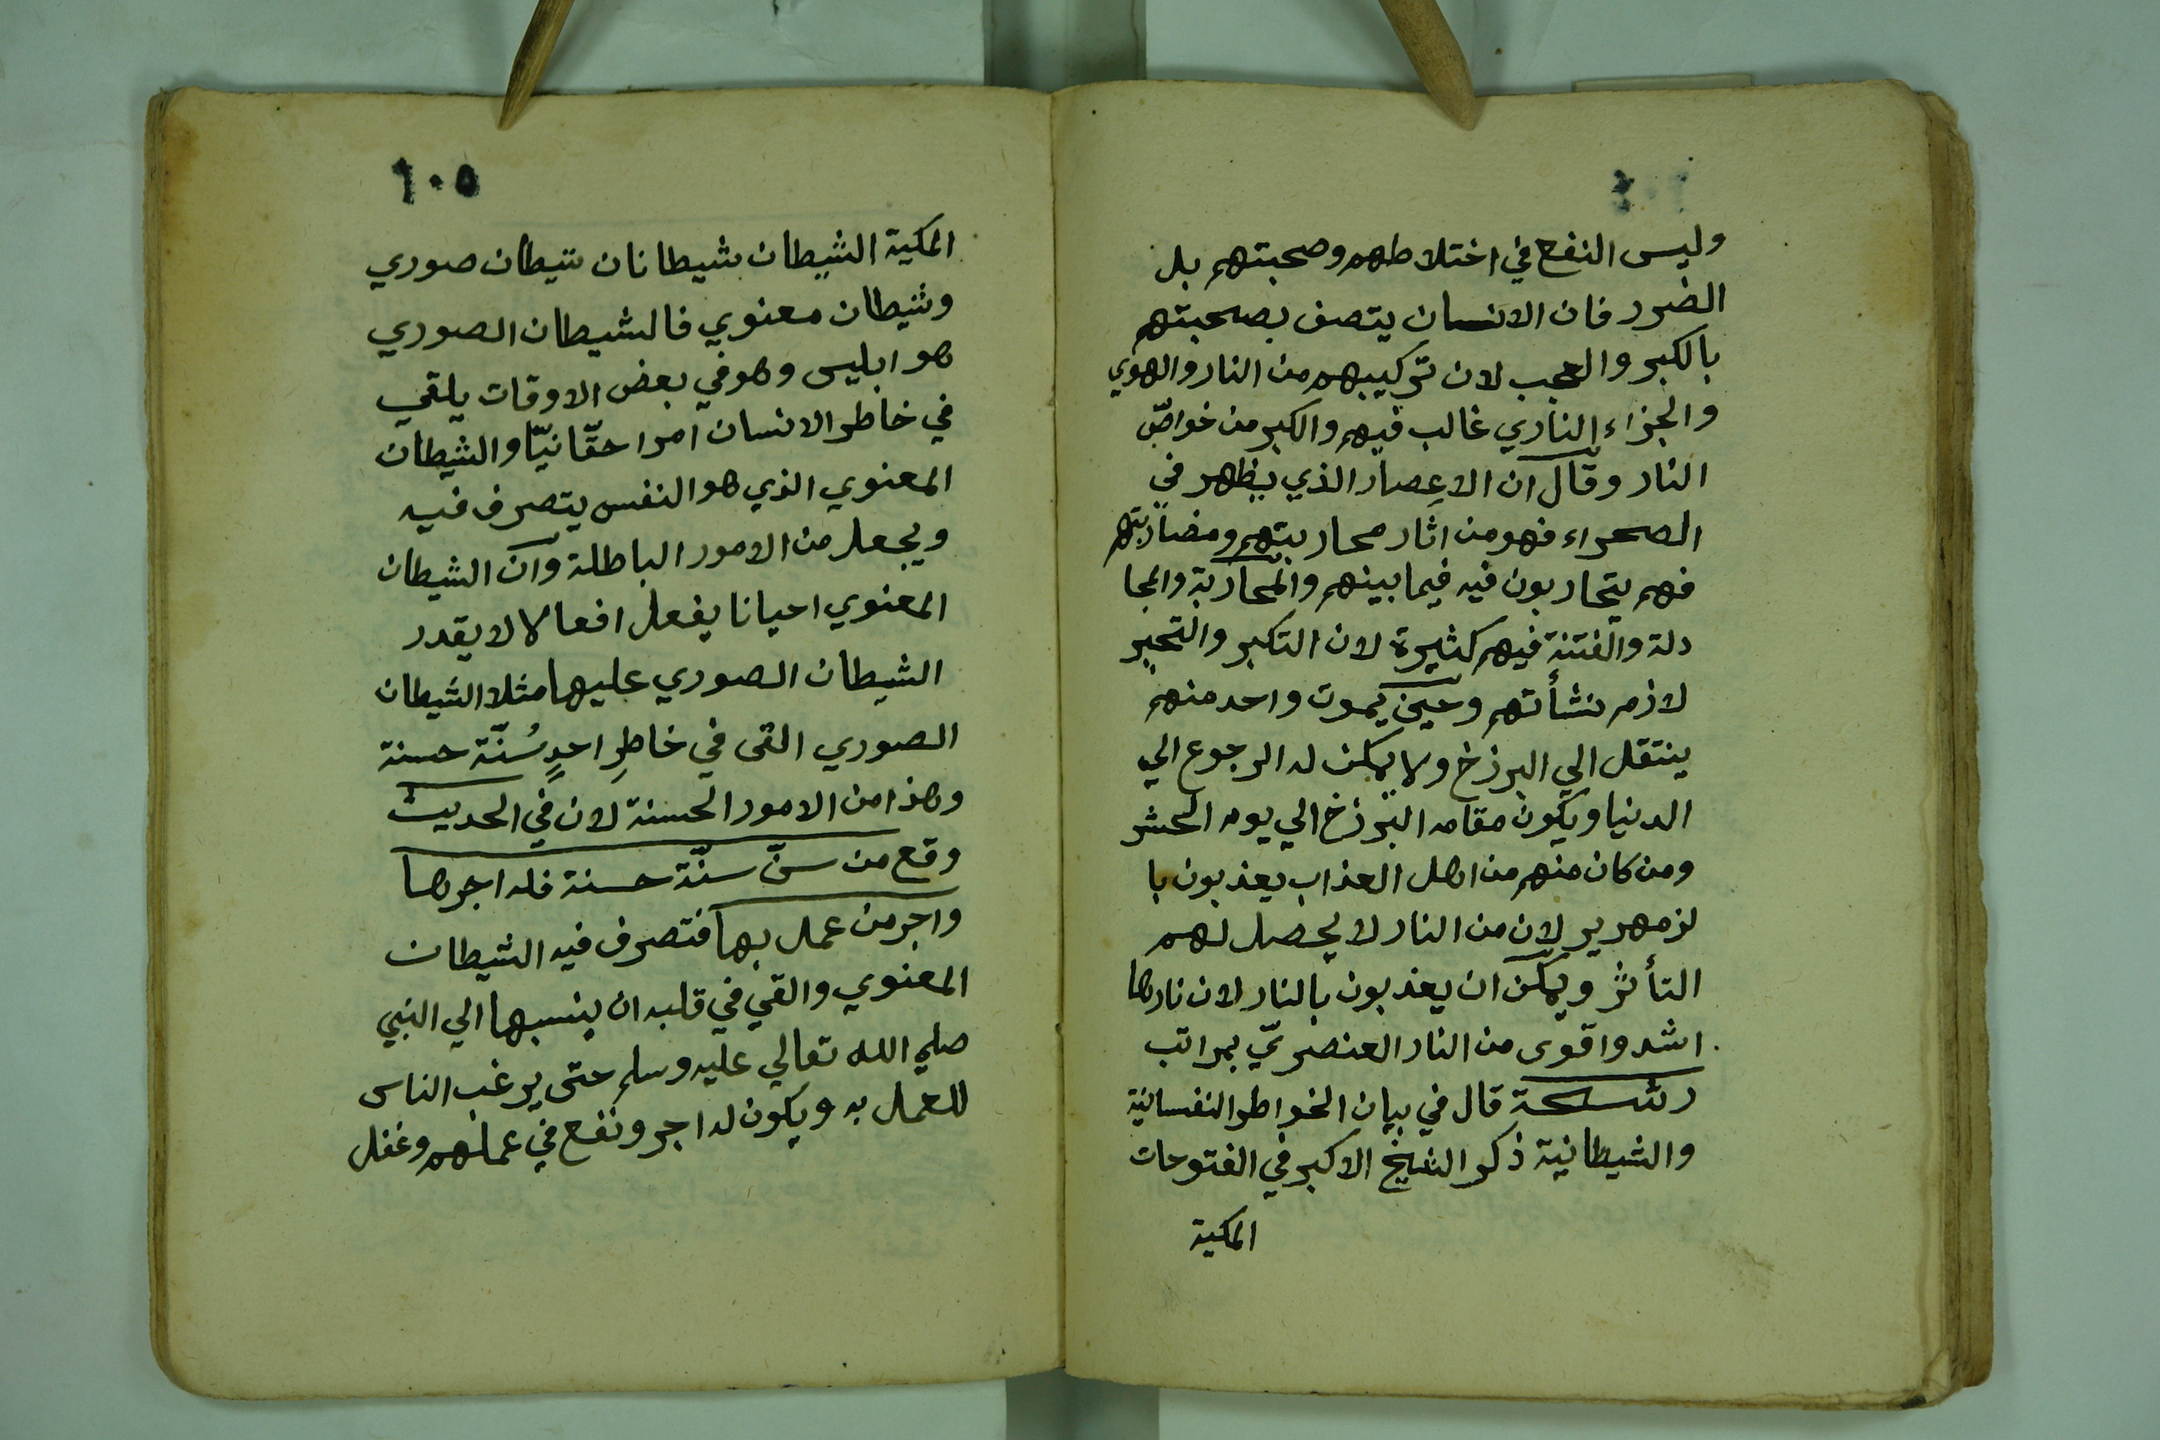 وليس النفع في اختلاطهم وصحبتهم بل
الضرر فان الانسان يتصف بصحبتهم
بالكبر والعجب لان تركيبهم من النار والهوي
والجزاء الناري غالب فيهم والكبر من خواصّ
النار وقال ان الاعِصار الذي يظهر في
الصحراء فهو من اثار محاربتهم ومضاربتهم
فهم يتحاربون فيه فيما بينهم والمحاربة والمجا
دلة والفتنة فيهم كثيرة لان التكبر والتجبر
لازم نشأتهم وحين يموت واحد منهم
ينتقل الي البرزخ ولا يمكن له الرجوع الي
الدنيا ويكون مقامه البرزخ الي يوم الحشر
ومن كان منهم من اهل العذاب يعذبون با
لزمهرير لان من النار لا يحصل لهم
التأثر ويمكن ان يعذبون بالنار لان نارها
اشد واقوى من النار العنصريّ بمراتب
رشحة قال في بيان الخواطر النفسانية
والشيطانية ذكر الشيخ الاكبر في الفتوحات
المكية
١٠٥
المكية الشيطان شيطانان شيطان صوري
وشيطان معنوي فالشيطان الصوري
هو ابليس وهو في بعض الاوقات يلقي
في خاطر الانسان امرا حقّانيّا والشيطان
المعنوي الذي هو النفس يتصرف فيه
ويجعل من الامور الباطلة وان الشيطان
المعنوي احيانا يفعل افعالا لا يقدر
الشيطان الصوري عليها مثلا الشيطان
الصوري القى في خاطرِ احدٍ سُنّة حسنة
وهذا من الامور الحسنة لان في الحديث
وقع من سنّ سنّة حسنة فله اجرها
واجر من عمل بها فتصرف فيه الشيطان
المعنوي والقي في قلبه ان ينسبها الي النبي
صلي الله تعالي عليه وسلم حتى يرغب الناس
للعمل به ويكون له اجر ونفع في عملهم وغفل